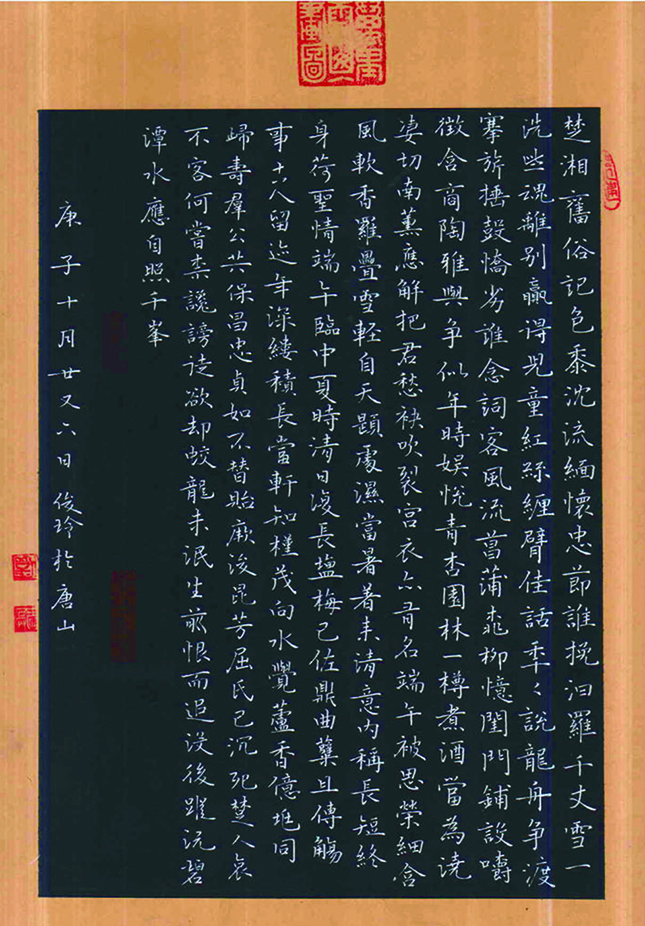 楚湘舊俗記包黍沈流緬懷忠節誰挽汨羅千丈雪一
洗些魂離別贏得兒童紅絲纏臂佳話年々說龍舟争渡
搴旂捶鼓憍劣誰念詞客風流菖蒲桃柳憶閨門鋪設嚼
徵含商陶雅興争似年時娱悅青杏園林一樽煮酒當為澆
凄切南薰應解把君愁袂吹裂宫衣亦有名端午被恩榮細含
風軟香羅疊雪輕自天題處濕當暑著来清意内稱長短終
身荷聖情端午臨中夏時清日復長鹽梅已佐鼎曲糵且傳觴
事古人留迹年深縷積長當軒知槿茂向水覺蘆香億兆同
歸壽羣公共保昌忠貞如不替貽厥後昆芳屈氏已沉死楚人哀
不容何嘗奈讒謗徒欲却蛟龍未泯生前恨而追没後蹤沅碧
潭水應自照千峯
庚子十月廿又六日俊玲於唐山